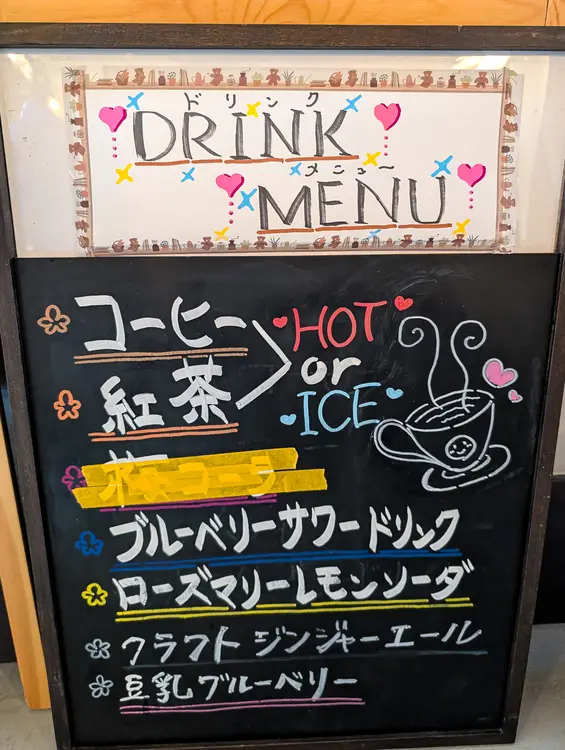 ドリンク
DRINK
メニュー
MENU
コーヒー
HOT
or
紅茶
ICE
ブルーベリーサワードリンク
ローズマリーレモンソーダ
クラフト ジンジャーエール
豆乳ブルーベリー